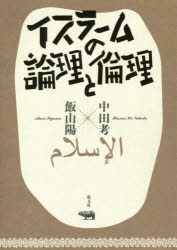 イスラームの
論理と倫理
中田考
×
飯山陽
الإسلام
晶文社